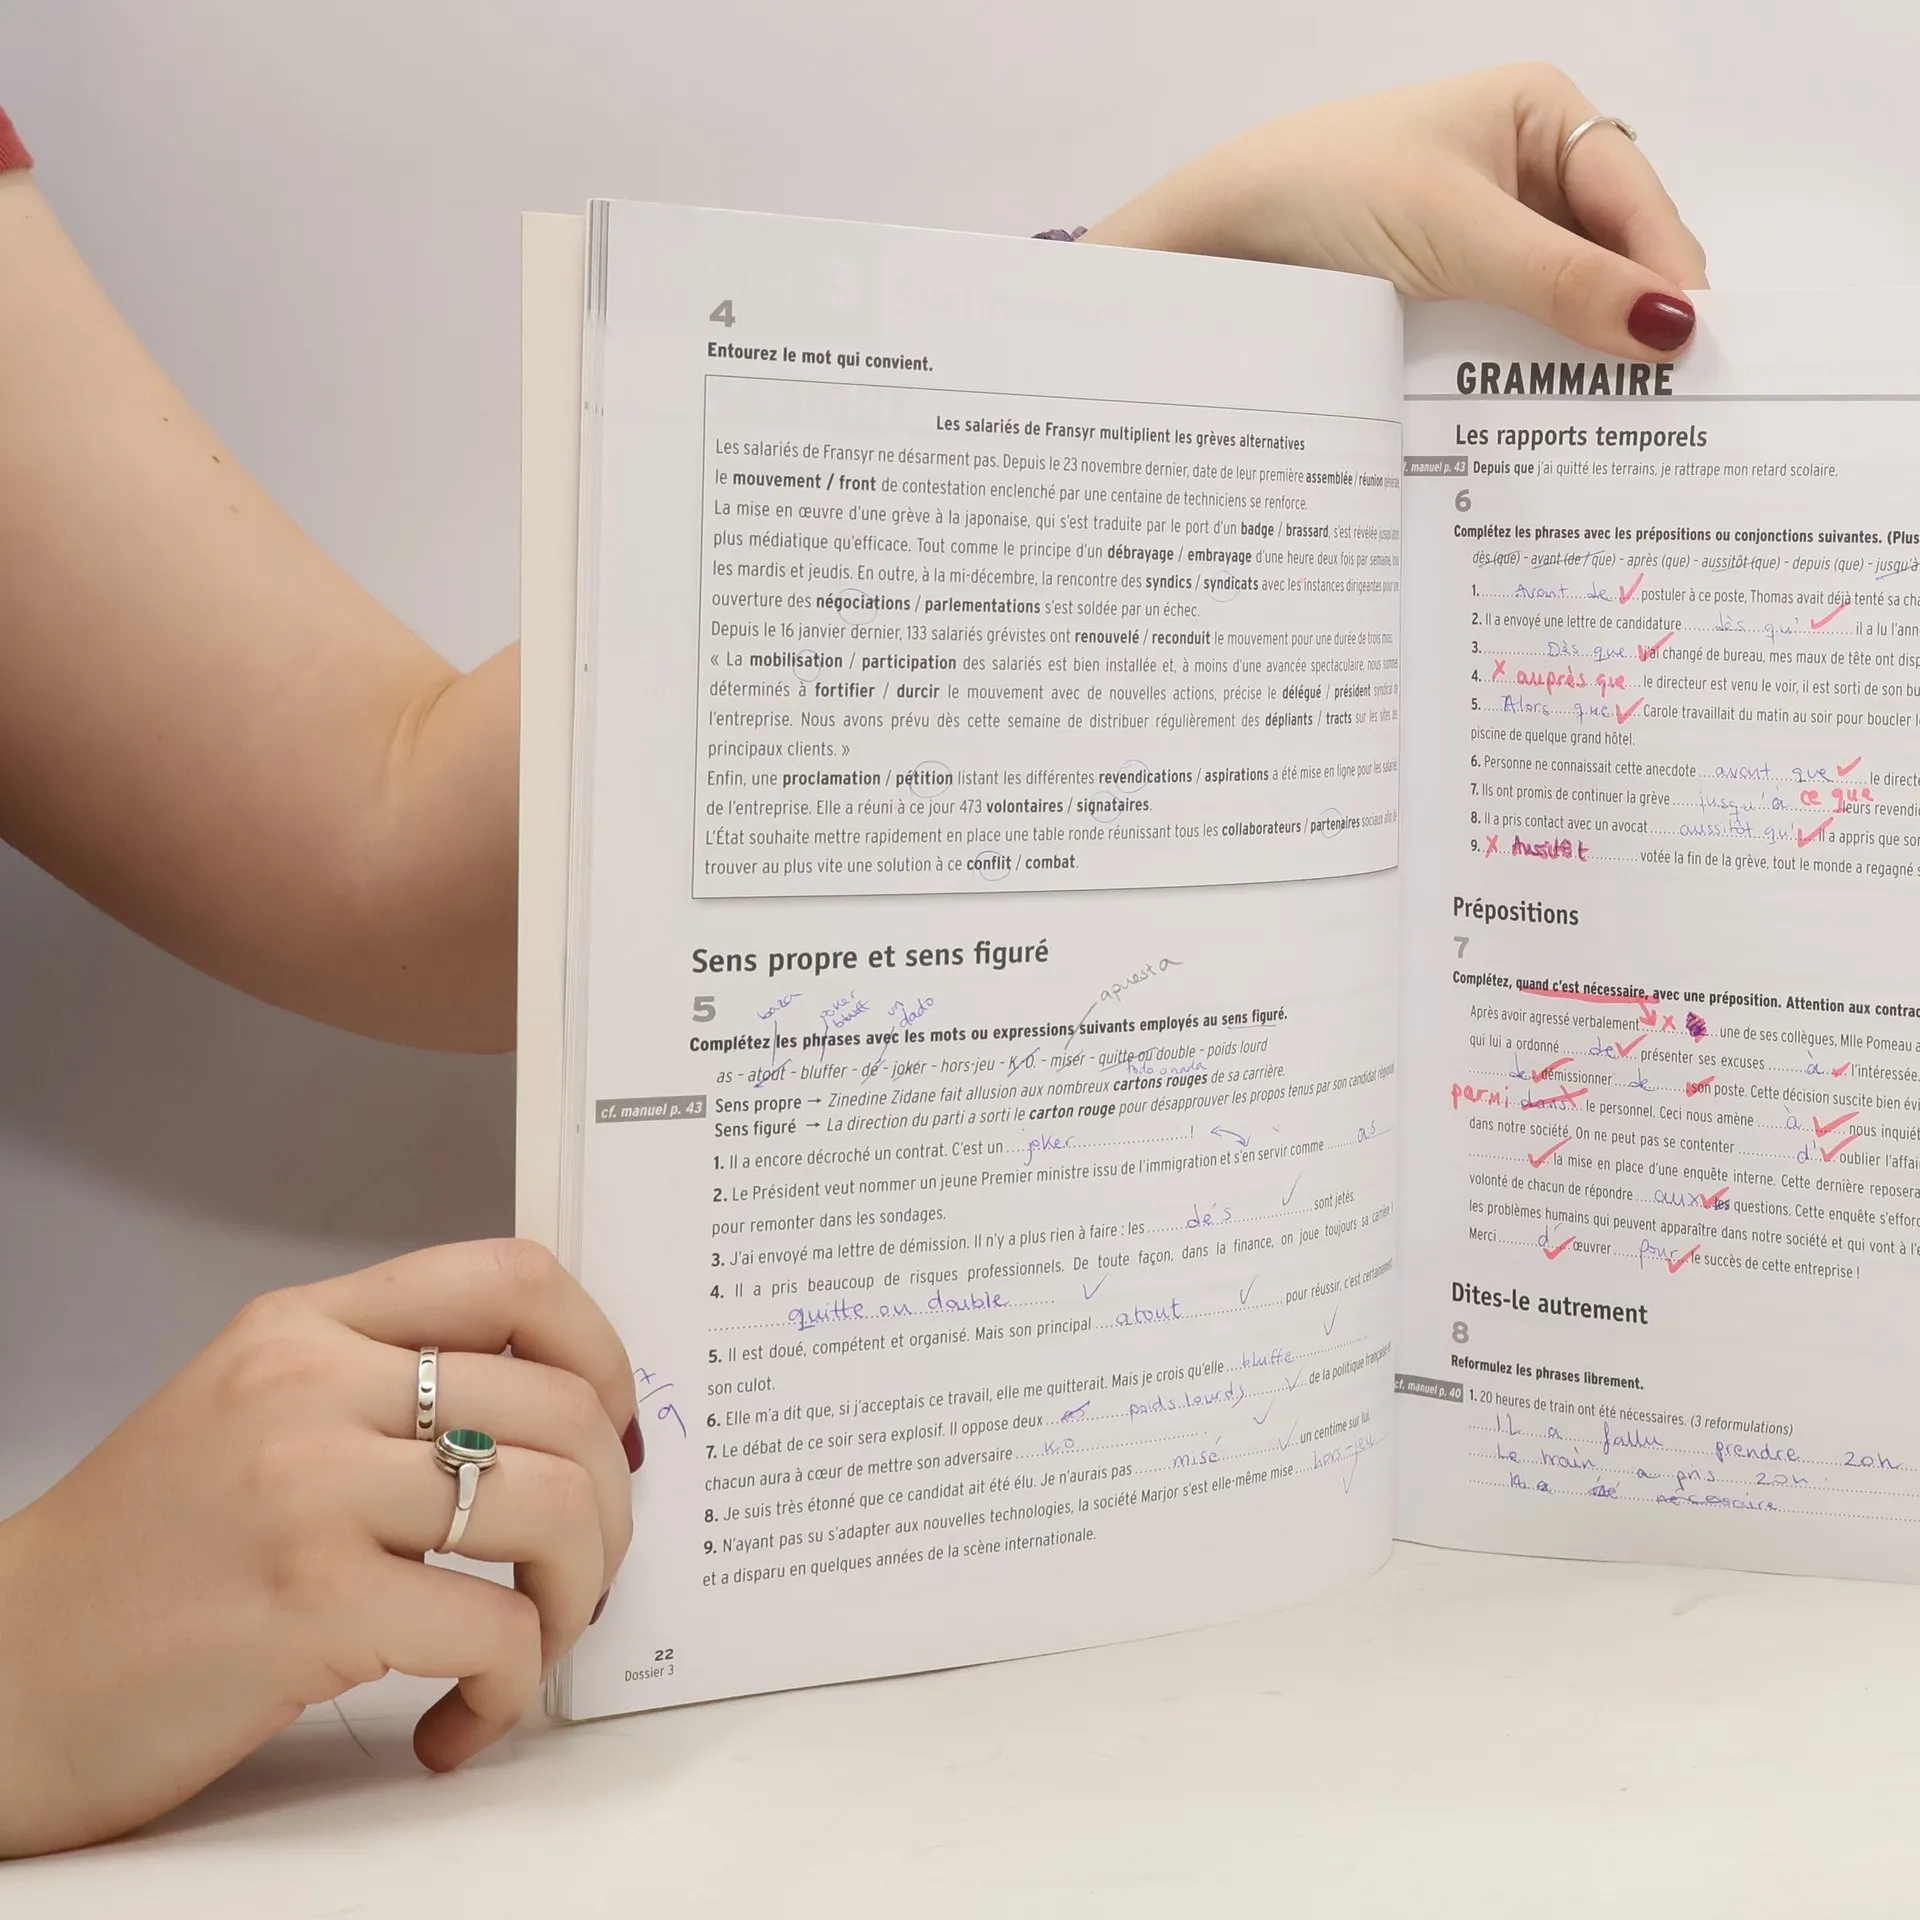 4
Entourez le mot qui convient.
Les salariés de Fransyr multiplient les grèves alternatives
Les salariés de Fransyr ne désarment pas. Depuis le 23 novembre dernier, date de leur première assemblée / réunion générale,
le mouvement / front de contestation enclenché par une centaine de techniciens se renforce.
La mise en œuvre d'une grève à la japonaise, qui s'est traduite par le port d'un badge / brassard, s'est révélée
plus médiatique qu'efficace. Tout comme le principe d'un débrayage / embrayage d'une heure deux fois par semaine,
les mardis et jeudis. En outre, à la mi-décembre, la rencontre des syndics / syndicats avec les instances dirigeantes
ouverture des négociations / parlementations s'est soldée par un échec.
Depuis le 16 janvier dernier, 133 salariés grévistes ont renouvelé / reconduit le mouvement pour une durée de trois mois.
« La mobilisation / participation des salariés est bien installée et, à moins d'une avancée spectaculaire, nous sommes
déterminés à fortifier / durcir le mouvement avec de nouvelles actions, précise le délégué / président syndical de
l'entreprise. Nous avons prévu dès cette semaine de distribuer régulièrement des dépliants / tracts sur les sites de
principaux clients. »
Enfin, une proclamation / pétition listant les différentes revendications / aspirations a été mise en ligne pour les salariés
de l'entreprise. Elle a réuni à ce jour 473 volontaires / signataires.
L'État souhaite mettre rapidement en place une table ronde réunissant tous les collaborateurs / partenaires sociaux afin de
trouver au plus vite une solution à ce conflit / combat.
Sens propre et sens figuré
apuesta
5
poker
un dado
Complétez les phrases avec les mots ou expressions suivants employés au sens figuré.
as - atout - bluffer - dé - joker - hors-jeu - K.-O. - miser - quitte ou double - poids lourd
todo o nada
cf. manuel p. 43 Sens propre → Zinedine Zidane fait allusion aux nombreux cartons rouges de sa carrière.
Sens figuré → La direction du parti a sorti le carton rouge pour désapprouver les propos tenus par son candidat régional.
1. Il a encore décroché un contrat. C'est un joker !
2. Le Président veut nommer un jeune Premier ministre issu de l'immigration et s'en servir comme as
pour remonter dans les sondages.
3. J'ai envoyé ma lettre de démission. Il n'y a plus rien à faire : les dés sont jetés.
4. Il a pris beaucoup de risques professionnels. De toute façon, dans la finance, on joue toujours sa carrière à
quitte ou double
5. Il est doué, compétent et organisé. Mais son principal atout pour réussir, c'est certainement
son culot.
6. Elle m'a dit que, si j'acceptais ce travail, elle me quitterait. Mais je crois qu'elle bluffe
7. Le débat de ce soir sera explosif. Il oppose deux poids lourds de la politique française et
chacun aura à cœur de mettre son adversaire K.O
8. Je suis très étonné que ce candidat ait été élu. Je n'aurais pas misé un centime sur lui.
9. N'ayant pas su s'adapter aux nouvelles technologies, la société Marjor s'est elle-même mise hors-jeu
et a disparu en quelques années de la scène internationale.
7/9
22
Dossier 3
GRAMMAIRE
Les rapports temporels
manuel p. 43 Depuis que j'ai quitté les terrains, je rattrape mon retard scolaire.
6
Complétez les phrases avec les prépositions ou conjonctions suivantes. (Plus
dès (que) - avant (de / que) - après (que) - aussitôt (que) - depuis (que) - jusqu'à
1. Avant de postuler à ce poste, Thomas avait déjà tenté sa
2. Il a envoyé une lettre de candidature dès qu' il a lu l'ann
3. Dès que j'ai changé de bureau, mes maux de tête ont disp
4. auprès que le directeur est venu le voir, il est sorti de son bu
5. Alors que Carole travaillait du matin au soir pour boucler
piscine de quelque grand hôtel.
6. Personne ne connaissait cette anecdote avant que le direct
7. Ils ont promis de continuer la grève jusqu'à ce que leurs revendi
8. Il a pris contact avec un avocat aussitôt qu' il a appris que
9. Aussitôt votée la fin de la grève, tout le monde a regagné
Prépositions
7
Complétez, quand c'est nécessaire, avec une préposition. Attention aux contrac
Après avoir agressé verbalement une de ses collègues, Mlle Pomeau a
qui lui a ordonné de présenter ses excuses à l'intéressée.
de démissionner de son poste. Cette décision suscite bien évi
parmi dans le personnel. Ceci nous amène à nous inquiét
dans notre société. On ne peut pas se contenter d' oublier l'affai
la mise en place d'une enquête interne. Cette dernière reposera
volonté de chacun de répondre aux les questions. Cette enquête s'effor
les problèmes humains qui peuvent apparaître dans notre société et qui vont à l'
Merci d' œuvrer pour le succès de cette entreprise !
Dites-le autrement
8
Reformulez les phrases librement.
cf. manuel p. 40 1. 20 heures de train ont été nécessaires. (3 reformulations)
Il a fallu prendre 20h
Le train a pris 20h
nécessaire